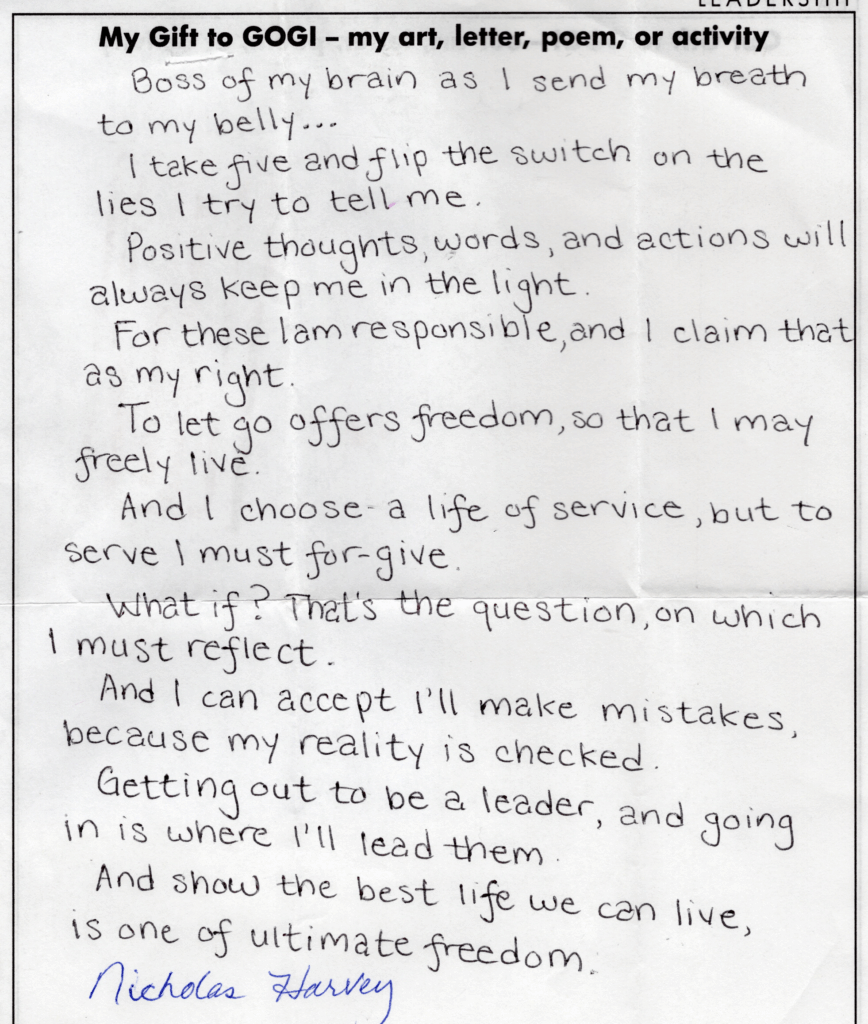 LEADERSHIP
My Gift to GOGI – my art, letter, poem, or activity
Boss of my brain as I send my breath
to my belly...
I take five and flip the switch on the
lies I try to tell me.
Positive thoughts, words, and actions will
always keep me in the light.
For these I am responsible, and I claim that
as my right.
To let go offers freedom, so that I may
freely live.
And I choose a life of service, but to
serve I must for-give.
What if? That's the question, on which
I must reflect.
And I can accept I'll make mistakes,
because my reality is checked.
Getting out to be a leader, and going
in is where I'll lead them.
And show the best life we can live,
is one of ultimate freedom.
Nicholas Harvey